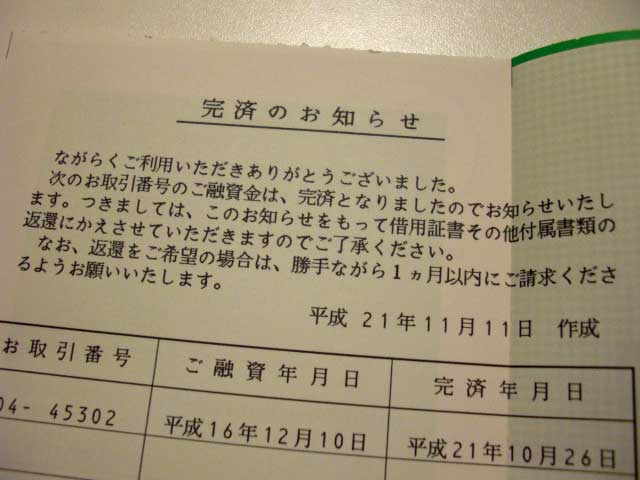 完済のお知らせ
ながらくご利用いただきありがとうございました。
次のお取引番号のご融資金は、完済となりましたのでお知らせいたし
ます。つきましては、このお知らせをもって借用証書その他付属書類の
返還にかえさせていただきますのでご了承ください。
なお、返還をご希望の場合は、勝手ながら1ヵ月以内にご請求くださ
るようお願いいたします。
平成 21年11月11日 作成
お取引番号 ご融資年月日 完済年月日
04- 45302 平成16年12月10日 平成21年10月26日